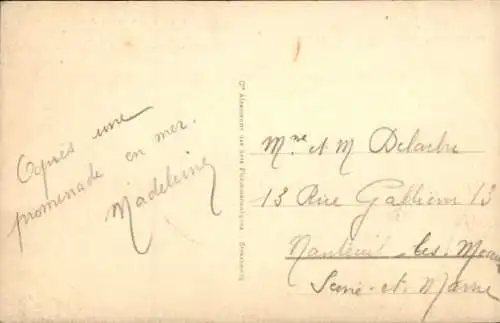 Après une
promenade en mer.
Madeleine
Cie Alsacienne des Arts Photomécaniques Strasbourg
Mme et M Delarbre
13 Rue Gallieni 13
Nanteuil-les-Meaux
Seine-et-Marne